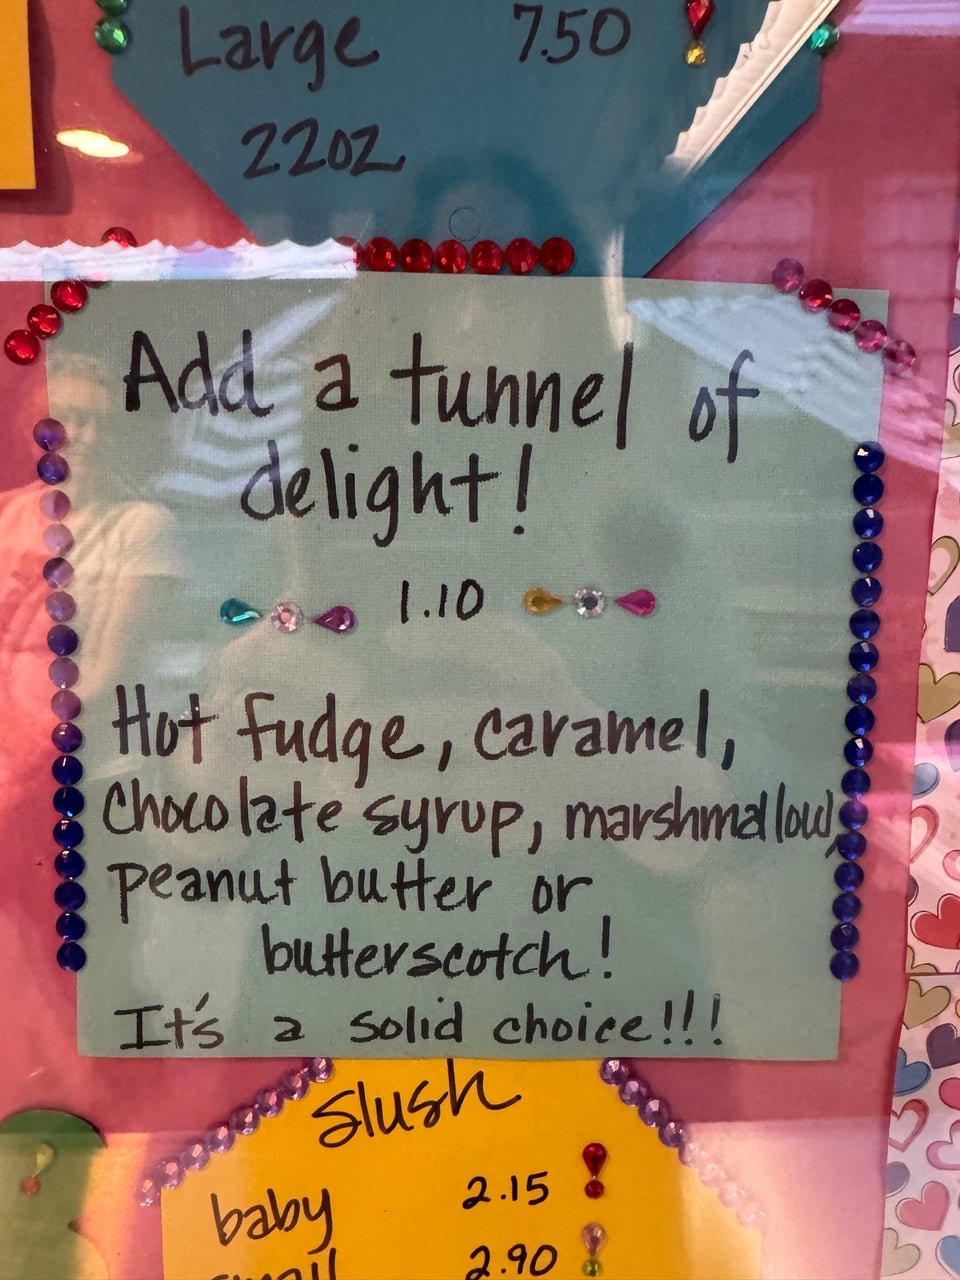 Large 7.50
22oz
Add a tunnel of
delight!
1.10
Hot fudge, caramel,
chocolate syrup, marshmallow,
peanut butter or
butterscotch!
It's a solid choice!!!
slush
baby 2.15
small 2.90